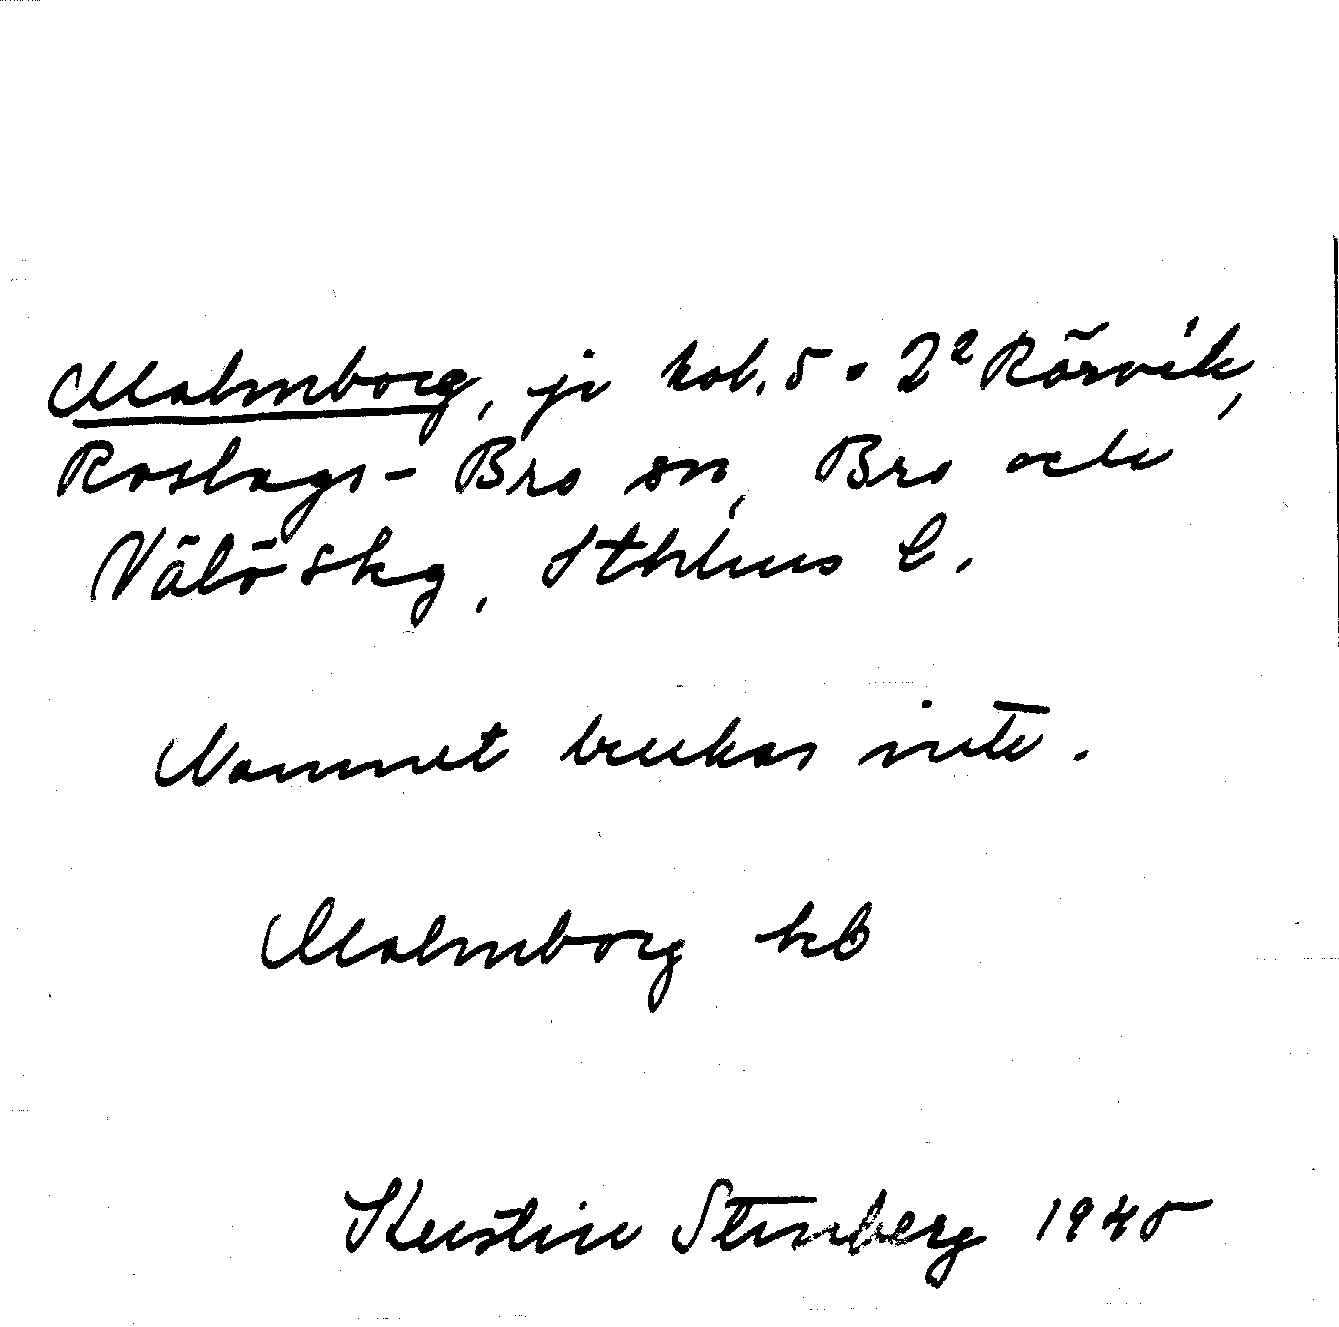 Malmborg, ji hol. 5 . 2² Rörvik,
Roslags-Bro sn, Bro och
Vätö skg, Sthlms l.
Namnet brukas inte.
Malmborg kb
Kerstin Stenberg 1945